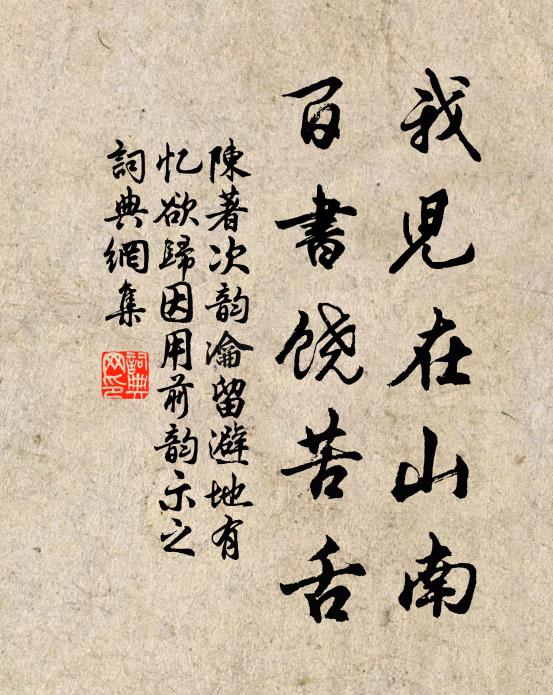 我児在山南
百書饶苦舌
陳著次韵瀹留避地有
忆欲歸因用前韵示之
詞典網集
詞典
网印